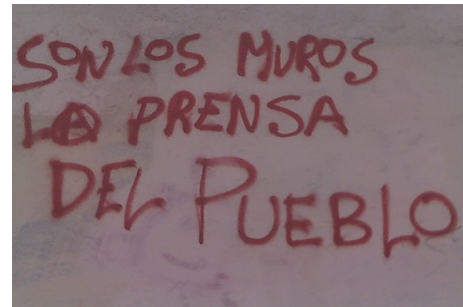 SON LOS MUROS
LA PRENSA
DEL PUEBLO